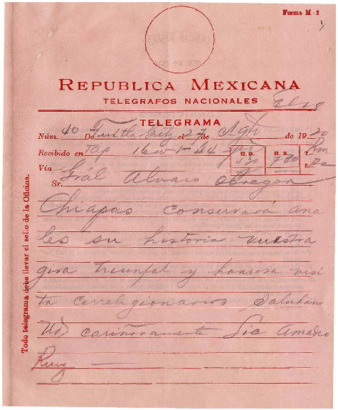 Forma M-2
REPUBLICA MEXICANA
TELEGRAFOS NACIONALES
TELEGRAMA
Núm. 40 De Tuxtla Gtz el 27 de Agto de 1920
Recibido en Top 16 w 1-44 H.D. H.R.
Vía
Sr. Gral Alvaro Obregon
Chiapas conservará ana
les su historia vuestra
gira triunfal y honrosa visi
ta correligionarios saludan
Ud cariñosamente Lic Amadeo
Ruiz
Todo telegrama debe llevar el sello de la Oficina.